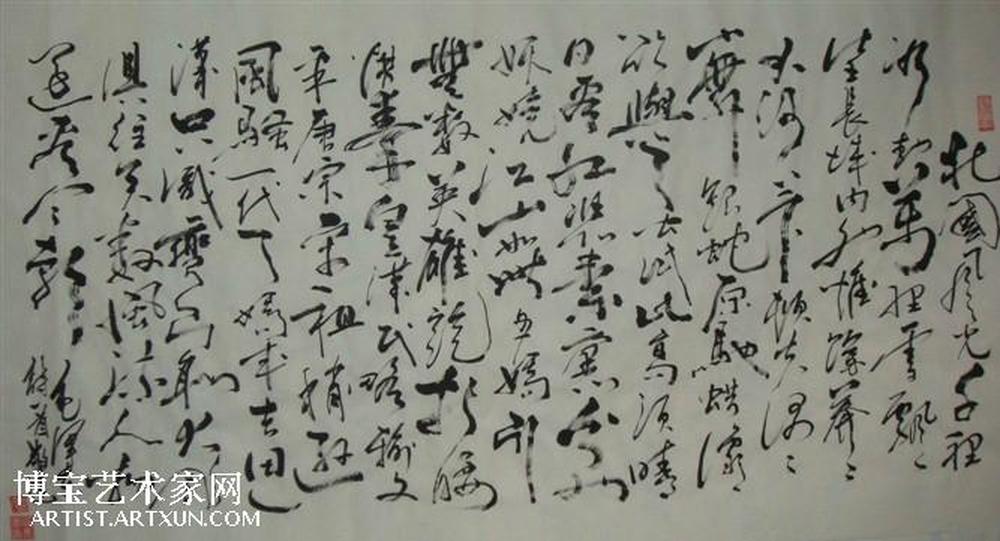 北國風光千裡
冰封萬裡雪飄〻
望長城内外惟餘莽〻
大河上下頓失滔〻
舞銀蛇原馳蜡
欲與天公試比高須晴
日看紅裝素裹分外
妖嬈江山如此多嬌引
無數英雄競折腰
惜秦皇漢武略輸文
采唐宗宋祖稍遜
風騷一代天嬌成吉思
漢只識彎弓射大雕
俱往矣數風流人物
還看今朝
毛澤東
博宝艺术家网
ARTIST.ARTXUN.COM